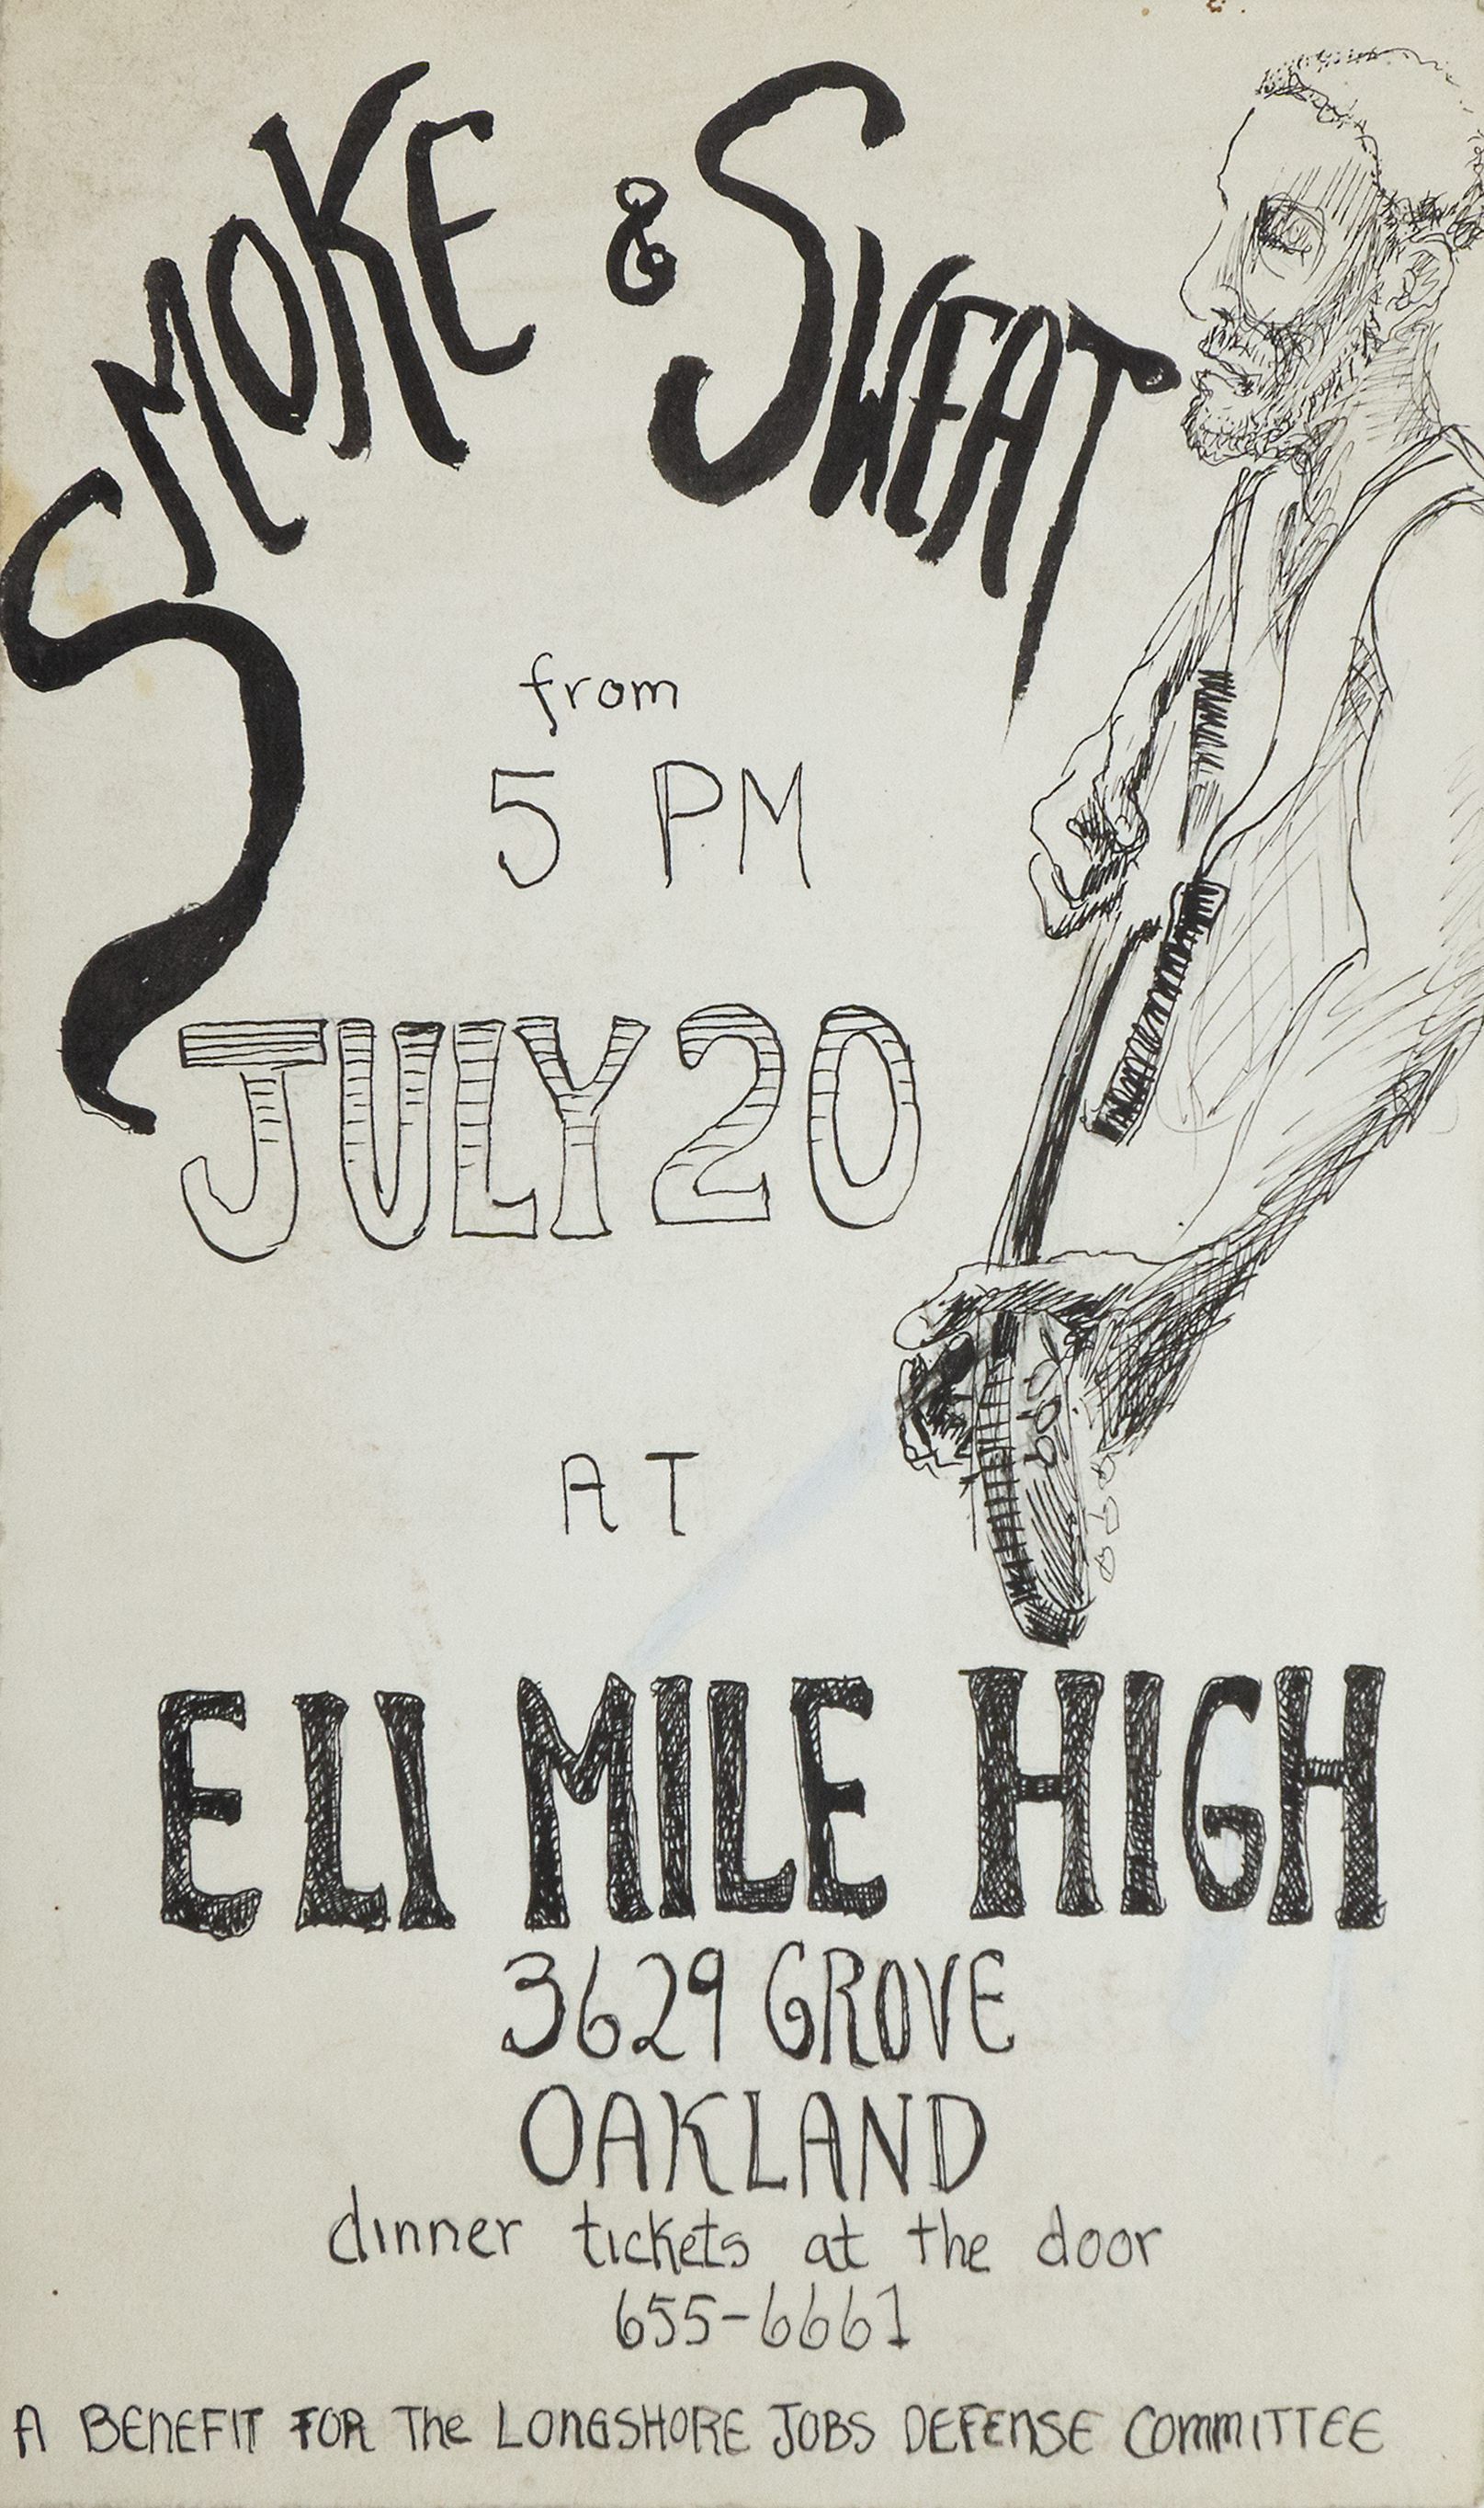 SMOKE & SWEAT
from
5 PM
JULY 20
AT
ELI MILE HIGH
3629 GROVE
OAKLAND
dinner tickets at the door
655-6661
A BENEFIT FOR The LONGSHORE JOBS DEFENSE COMMITTEE